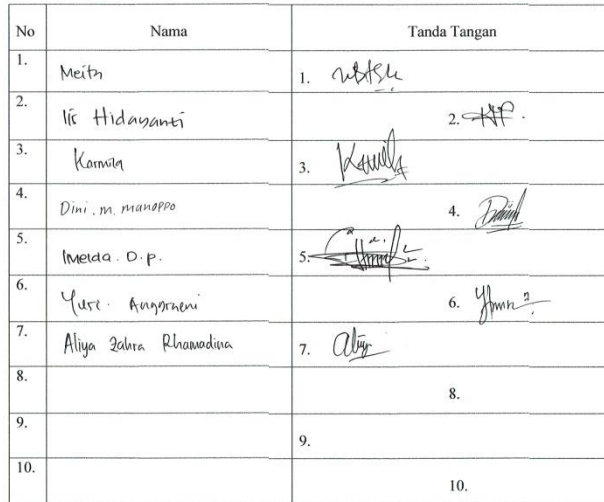 No Nama Tanda Tangan
1. Meith 1.
2. Iis Hidayanti 2.
3. Karmila 3. Kamila
4. Dini. m. manoppo 4.
5. Imelda. D. p. 5.
6. Yuri. Anggraeni 6.
7. Aliya Zahra Rhamadina 7.
8. 8.
9. 9.
10. 10.